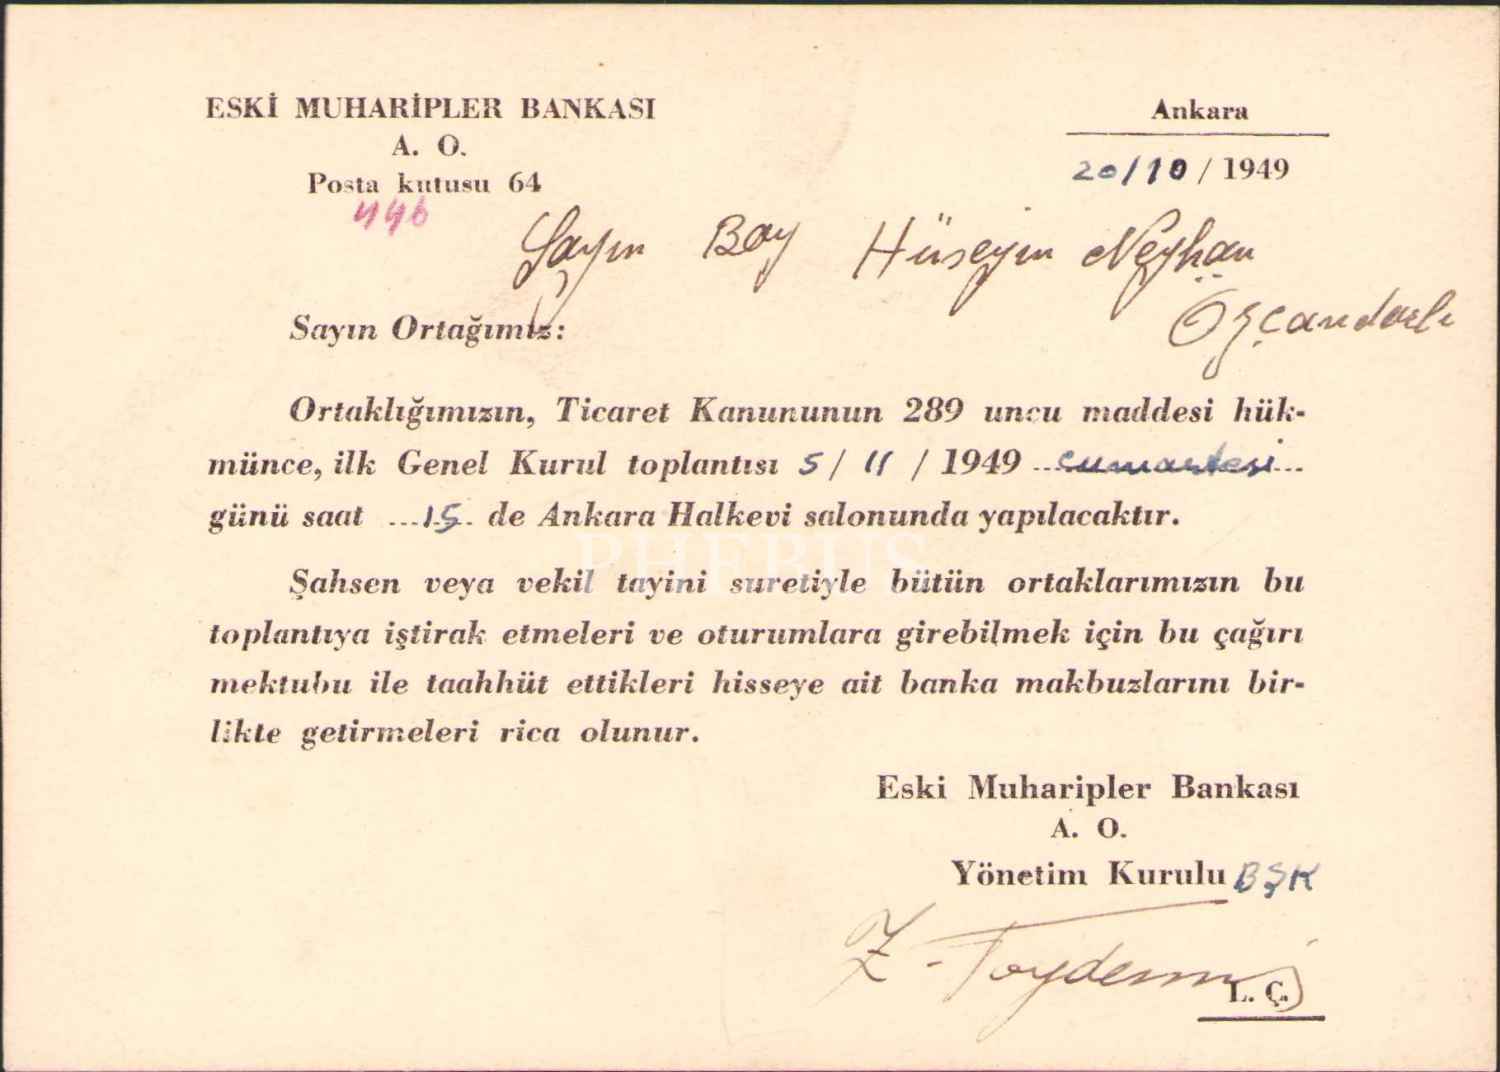 ESKİ MUHARİPLER BANKASI
A. O.
Posta kutusu 64
446
Ankara
20/10/1949
Sayın Bay Hüseyin Neyhan
Özçandarlı
Sayın Ortağımız:
Ortaklığımızın, Ticaret Kanununun 289 uncu maddesi hük-
münce, ilk Genel Kurul toplantısı 5/11/1949 ...cumartesi...
günü saat ...15.. de Ankara Halkevi salonunda yapılacaktır.
PHEBUS
Şahsen veya vekil tayini suretiyle bütün ortaklarımızın bu
toplantıya iştirak etmeleri ve oturumlara girebilmek için bu çağırı
mektubu ile taahhüt ettikleri hisseye ait banka makbuzlarını bir-
likte getirmeleri rica olunur.
Eski Muharipler Bankası
A. O.
Yönetim Kurulu BŞK
Z. Toydemir
L. Ç.